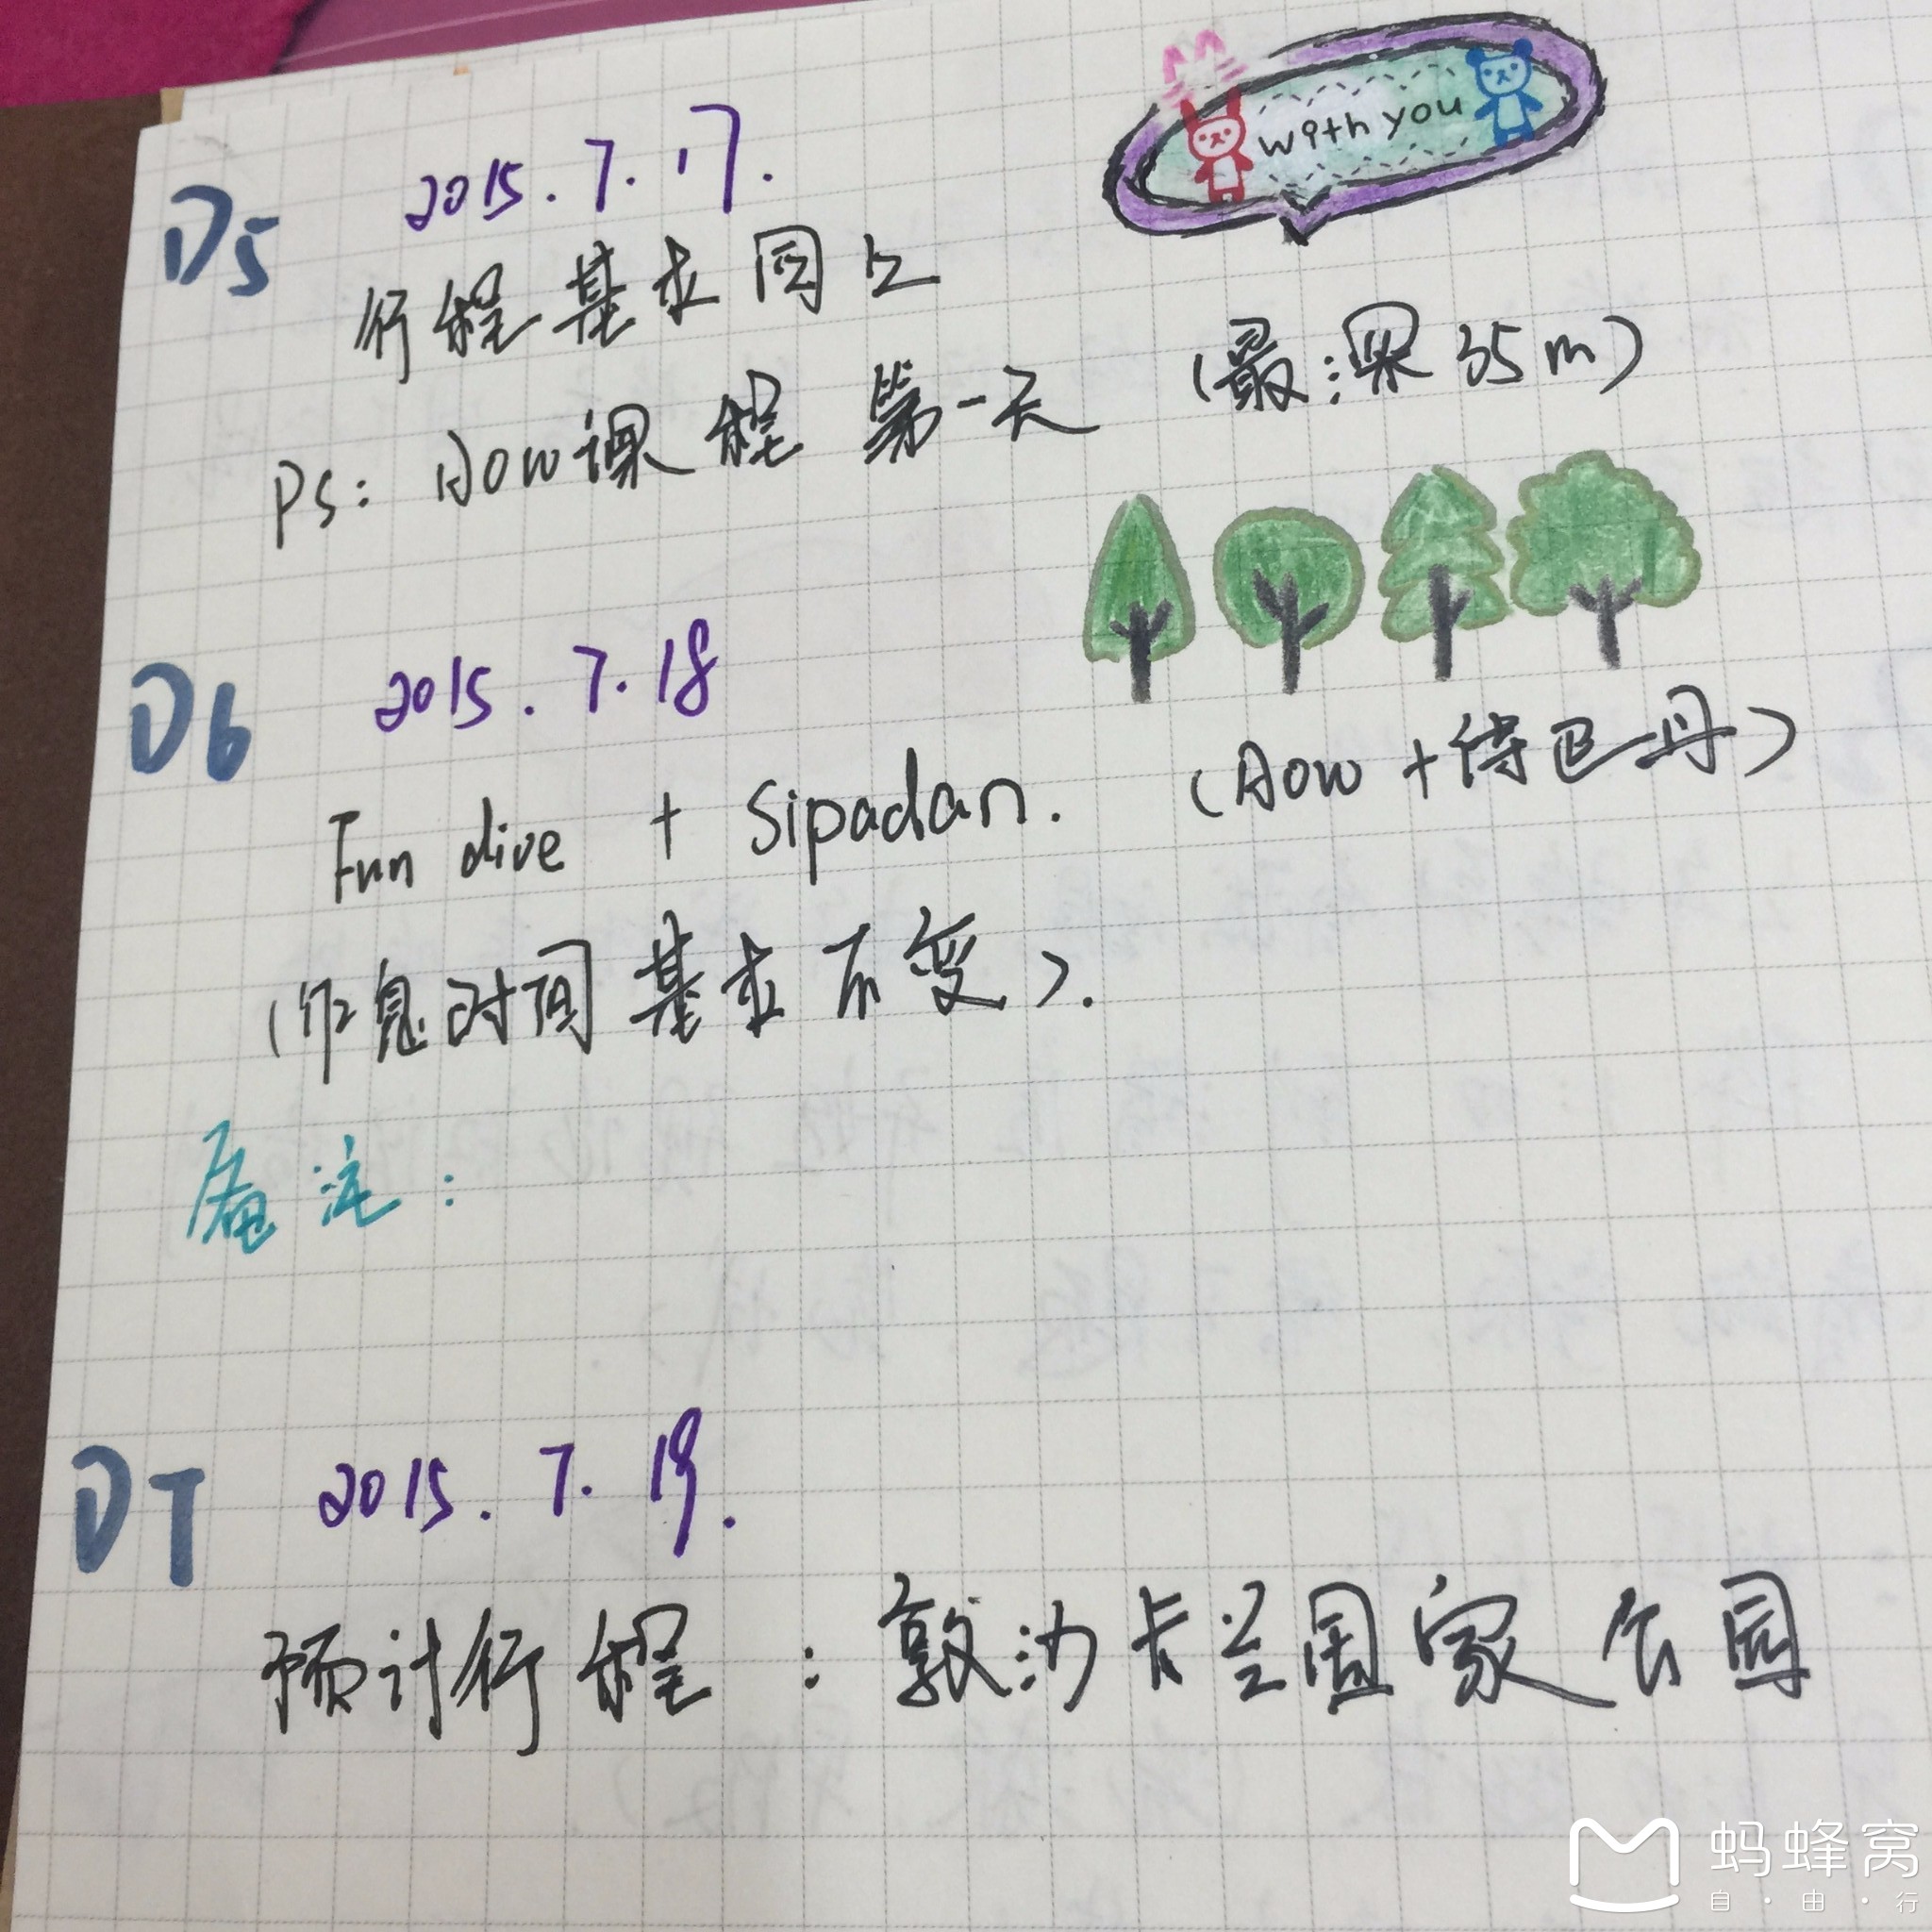 with you
D5 2015.7.17.
行程基本同上
PS: AOW课程 第一天 (最深35m)
D6 2015.7.18
Fun dive + Sipadan. (AOW+诗巴丹)
(作息时间基本不变).
备注:
D7 2015.7.19.
预计行程:敦沙卡兰国家公园
蚂蜂窝
自·由·行